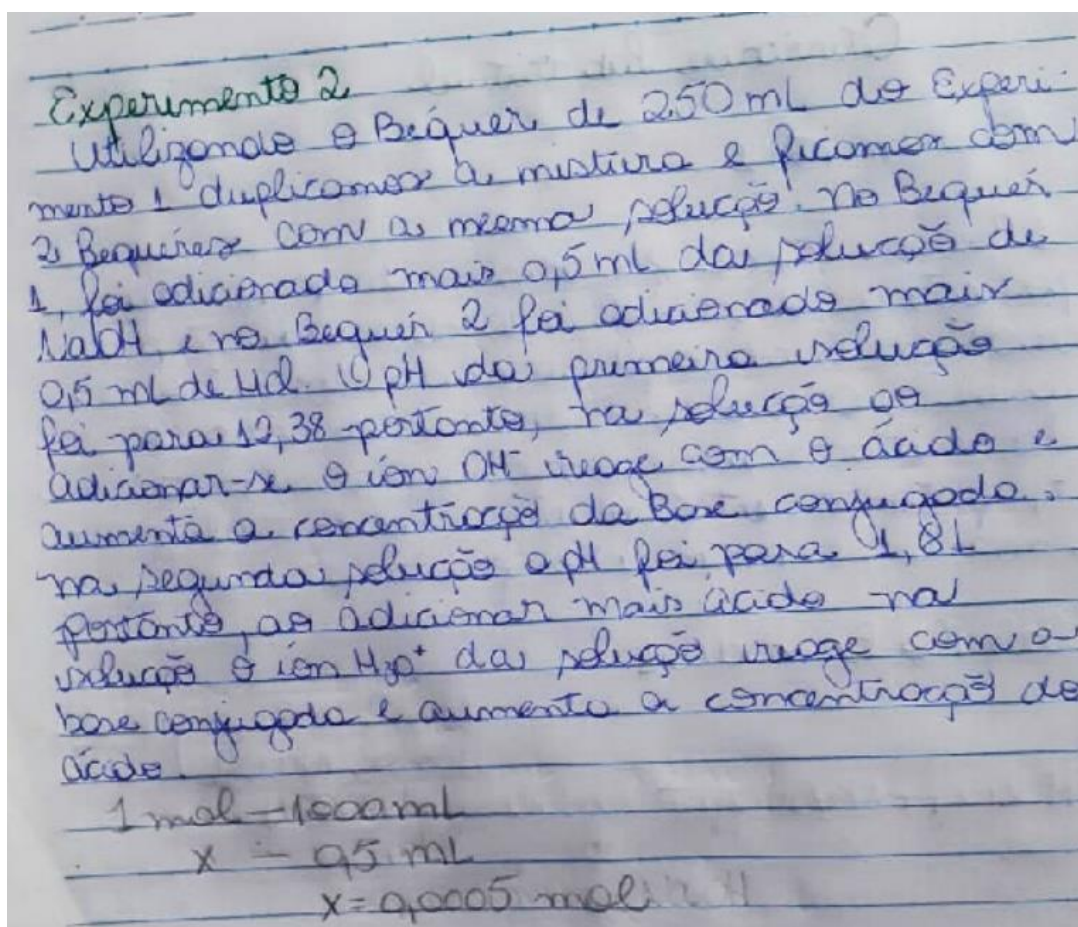 Experimento 2
Utilizando o Béquer de 250 mL do Experi-
mento 1 duplicamos a mistura e ficamos com
2 Bequeres com a mesma solução. No Bequer
1, foi adicionado mais 0,5 mL da solução de
NaOH e no Bequer 2 foi adicionado mais
0,5 mL de HCl. O pH da primeira solução
foi para 12,38 portanto, na solução ao
adicionar-se o íon OH⁻ reage com o ácido e
aumenta a concentração da Base conjugada.
na segunda solução o pH foi para 1,81
portanto, ao adicionar mais ácido na
solução o íon H₃O⁺ da solução reage com a
base conjugada e aumenta a concentração do
ácido.
1 mol – 1000 mL
x – 0,5 mL
x = 0,0005 mol